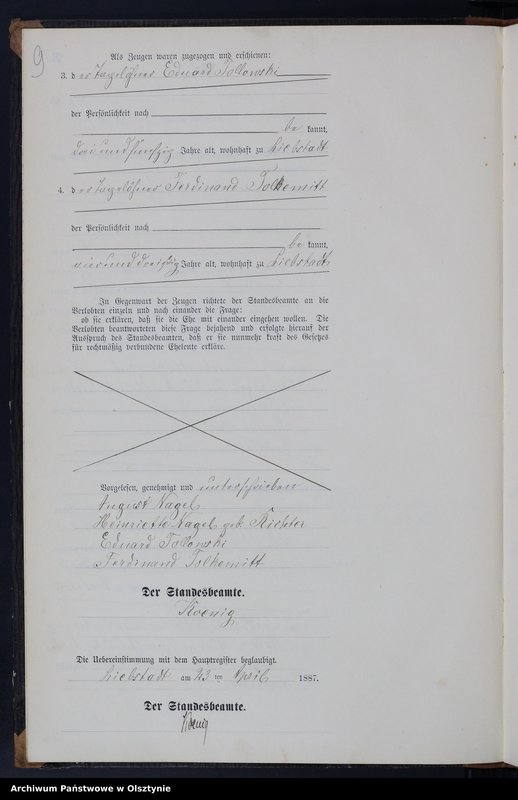 9
Als Zeugen waren zugezogen und erschienen:
3. der Tagelöhner Eduard Tollowski
der Persönlichkeit nach
be kannt,
drei und fünfzig Jahre alt, wohnhaft zu Liebstadt
4. der Tagelöhner Ferdinand Tolkemitt
der Persönlichkeit nach
be kannt,
vier und dreißig Jahre alt, wohnhaft zu Liebstadt
In Gegenwart der Zeugen richtete der Standesbeamte an die
Verlobten einzeln und nach einander die Frage:
ob sie erklären, daß sie die Ehe mit einander eingehen wollen. Die
Verlobten beantworteten diese Frage bejahend und erfolgte hierauf der
Ausspruch des Standesbeamten, daß er sie nunmehr kraft des Gesetzes
für rechtmäßig verbundene Eheleute erkläre.
Vorgelesen, genehmigt und unterschrieben
August Nagel
Heinriette Nagel geb. Richter
Eduard Tollowski
Ferdinand Tolkemitt
Der Standesbeamte.
Koenig
Die Uebereinstimmung mit dem Hauptregister beglaubigt.
Liebstadt am 23 ten April 1887.
Der Standesbeamte.
Koenig
Archiwum Państwowe w Olsztynie